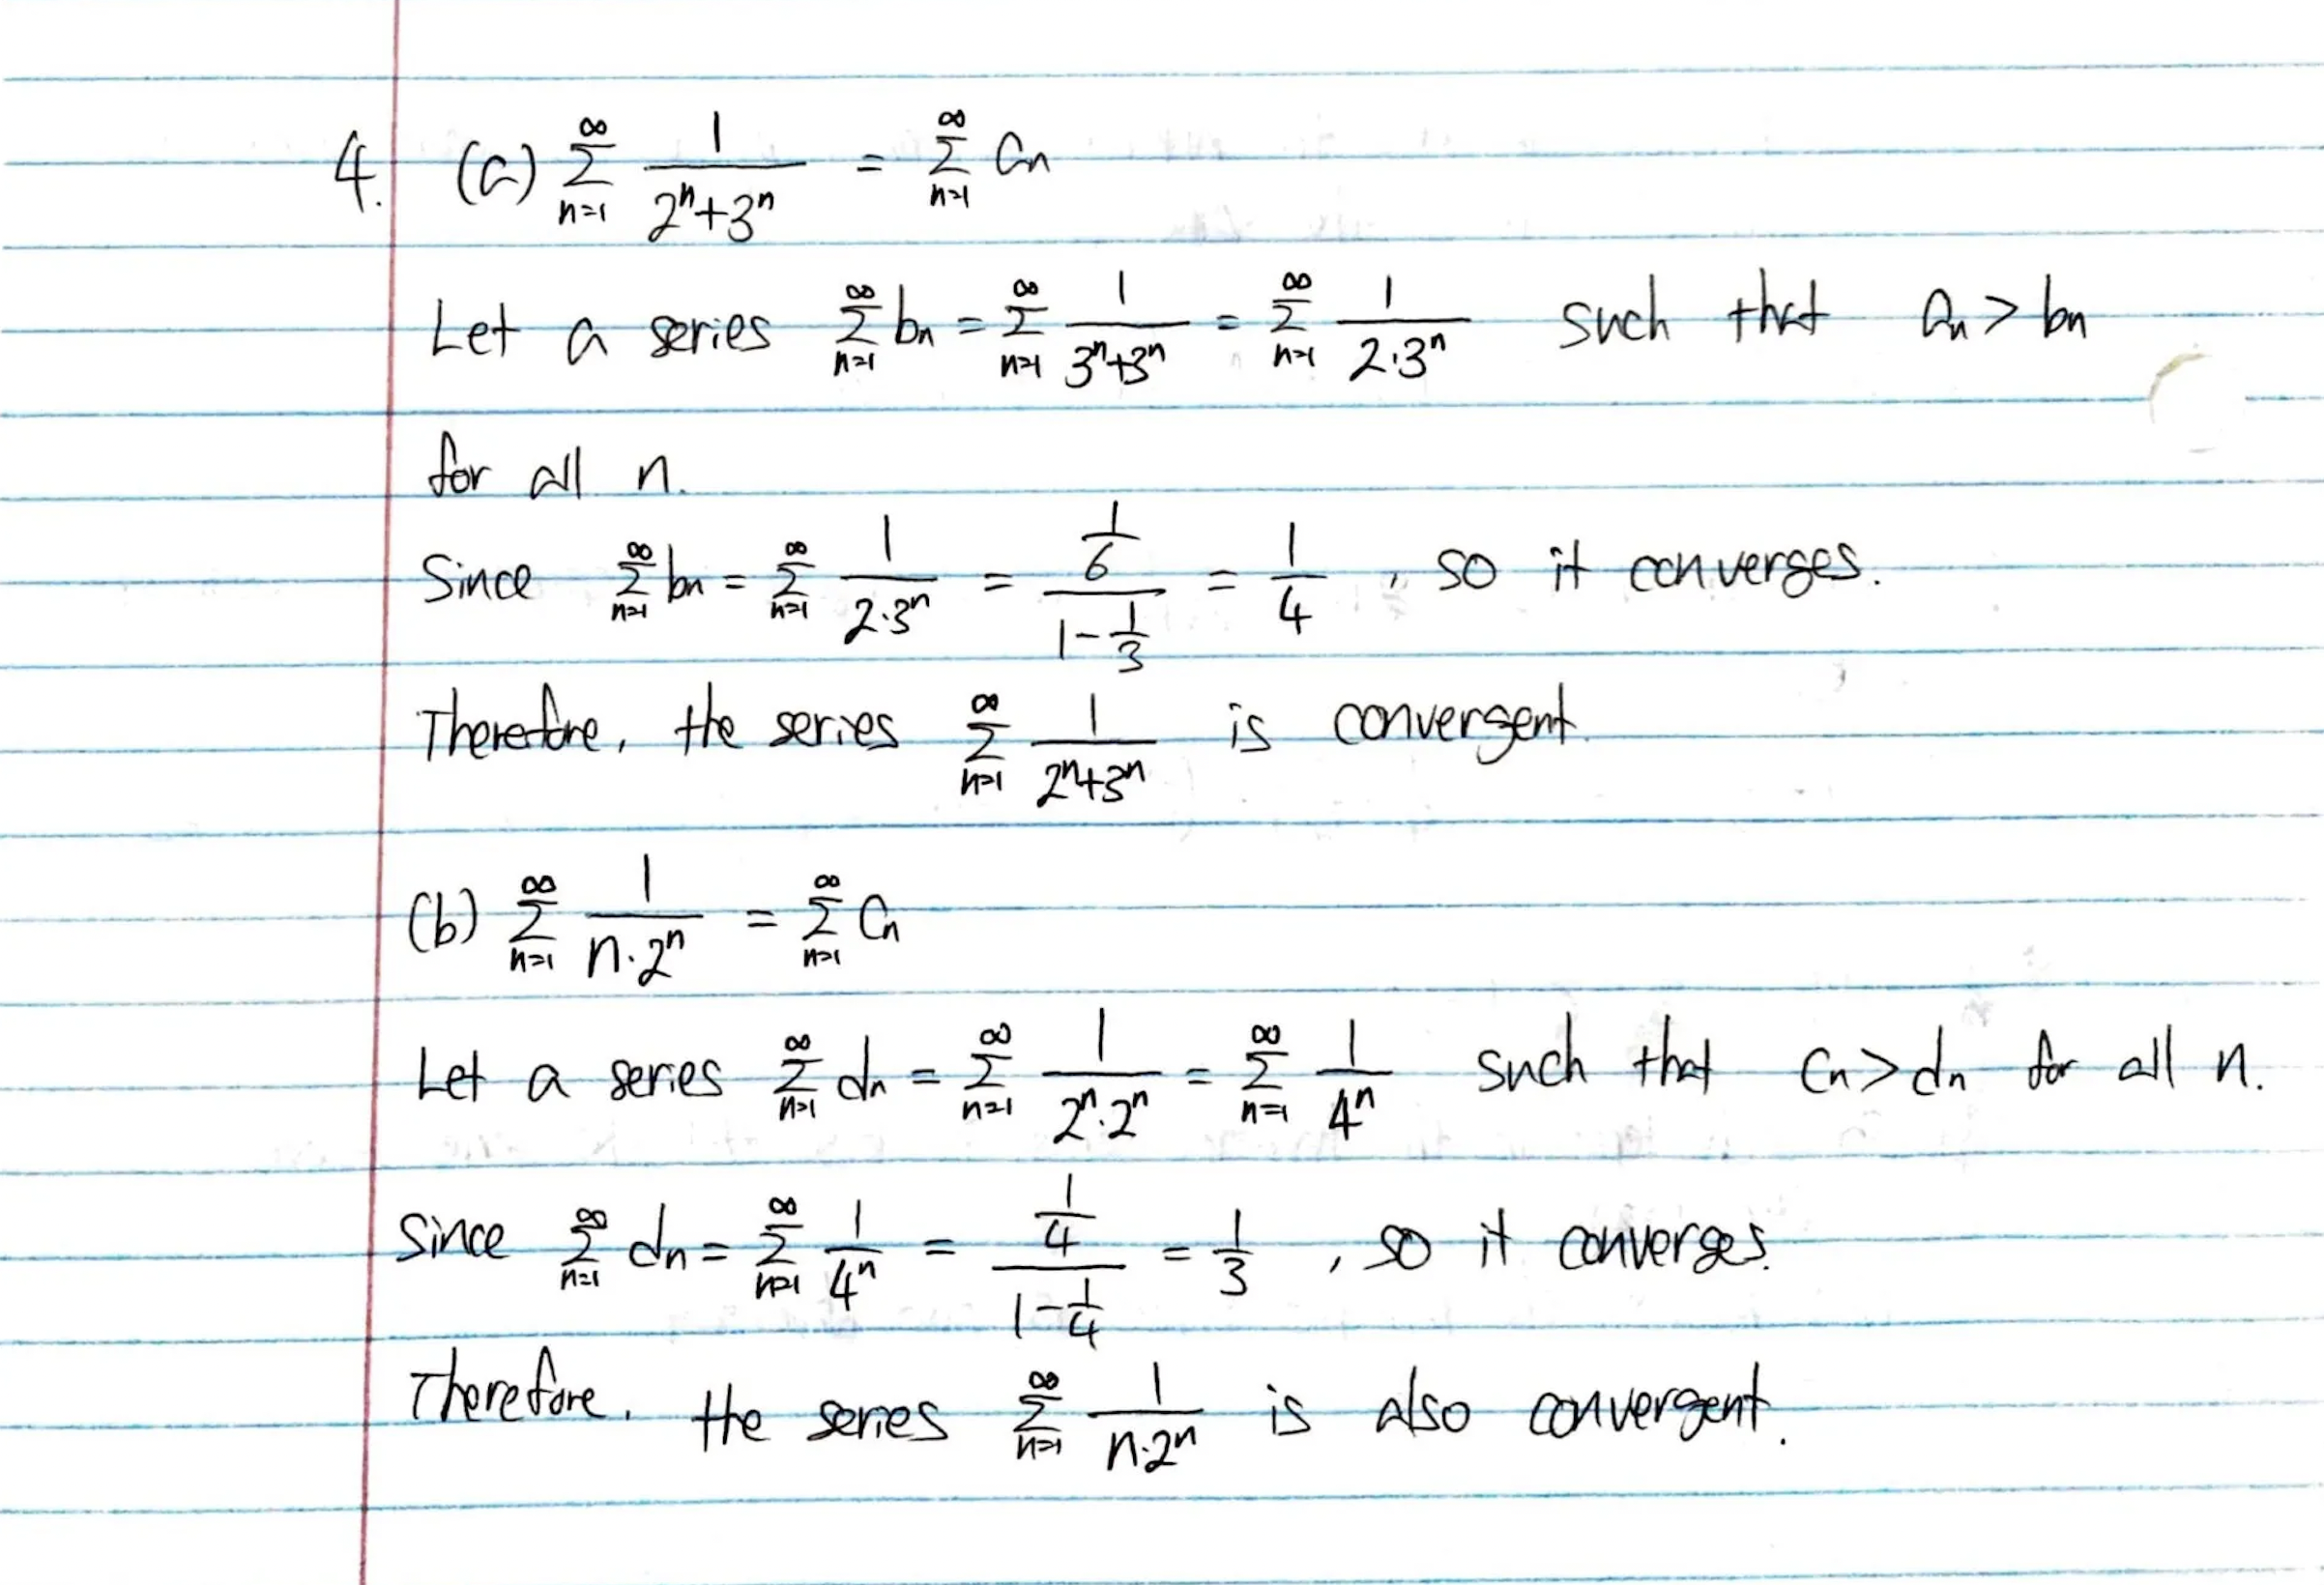 4. (a) $\sum_{n=1}^{\infty} \frac{1}{2^n+3^n} = \sum_{n=1}^{\infty} a_n$
Let a series $\sum_{n=1}^{\infty} b_n = \sum_{n=1}^{\infty} \frac{1}{3^n+3^n} = \sum_{n=1}^{\infty} \frac{1}{2 \cdot 3^n}$ such that $a_n > b_n$
for all n.
Since $\sum_{n=1}^{\infty} b_n = \sum_{n=1}^{\infty} \frac{1}{2 \cdot 3^n} = \frac{\frac{1}{6}}{1-\frac{1}{3}} = \frac{1}{4}$, so it converges.
Therefore, the series $\sum_{n=1}^{\infty} \frac{1}{2^n+3^n}$ is convergent.
(b) $\sum_{n=1}^{\infty} \frac{1}{n \cdot 2^n} = \sum_{n=1}^{\infty} C_n$
Let a series $\sum_{n=1}^{\infty} d_n = \sum_{n=1}^{\infty} \frac{1}{2^n \cdot 2^n} = \sum_{n=1}^{\infty} \frac{1}{4^n}$ such that $C_n > d_n$ for all n.
Since $\sum_{n=1}^{\infty} d_n = \sum_{n=1}^{\infty} \frac{1}{4^n} = \frac{\frac{1}{4}}{1-\frac{1}{4}} = \frac{1}{3}$, so it converges.
Therefore, the series $\sum_{n=1}^{\infty} \frac{1}{n \cdot 2^n}$ is also convergent.